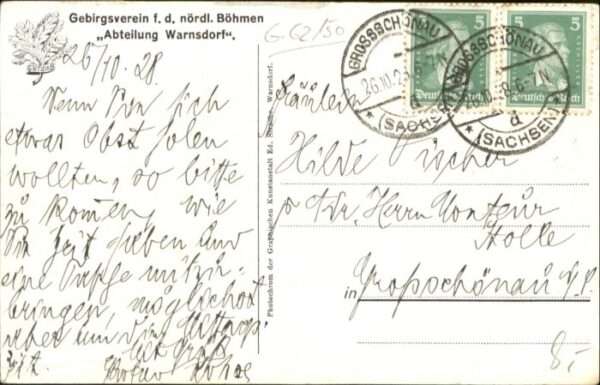 Gebirgsverein f. d. nördl. Böhmen
„Abteilung Warnsdorf".
26/10. 28.
Wenn Sie sich
etwas Obst holen
wollten, so bitte
zu kommen, wie
Sie Zeit haben und
eine Tasche mitzu-
bringen, möglichst
aber um die Mittags-
zeit.
Photochrom der Graphischen Kunstanstalt Ed. Strache, Warnsdorf.
G 62/50
GROSSSCHÖNAU
26.10.28
(SACHSEN)
GROSSSCHÖNAU
(SACHSEN)
d
5
5
Deutsches Reich
Deutsches Reich
Fräulein
Hilde Fischer
p. Adr. Herrn Monteur
Holle
in Großschönau i/S.
8,-